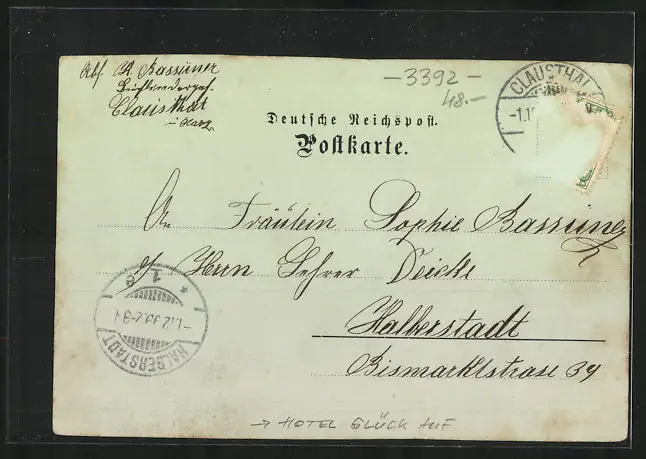 Abs. A. Bassüner
Clausthal
i. Harz.
– 3392 –
48.–
CLAUSTHAL
-1.12
Deutsche Reichspost.
Postkarte.
An Fräulein Sophie Bassüner
p/ Herrn Lehrer Deicke
Halberstadt
Bismarkstrase 39
HALBERSTADT
-1.12.99.
* 1 e
→ HOTEL GLÜCK AUF